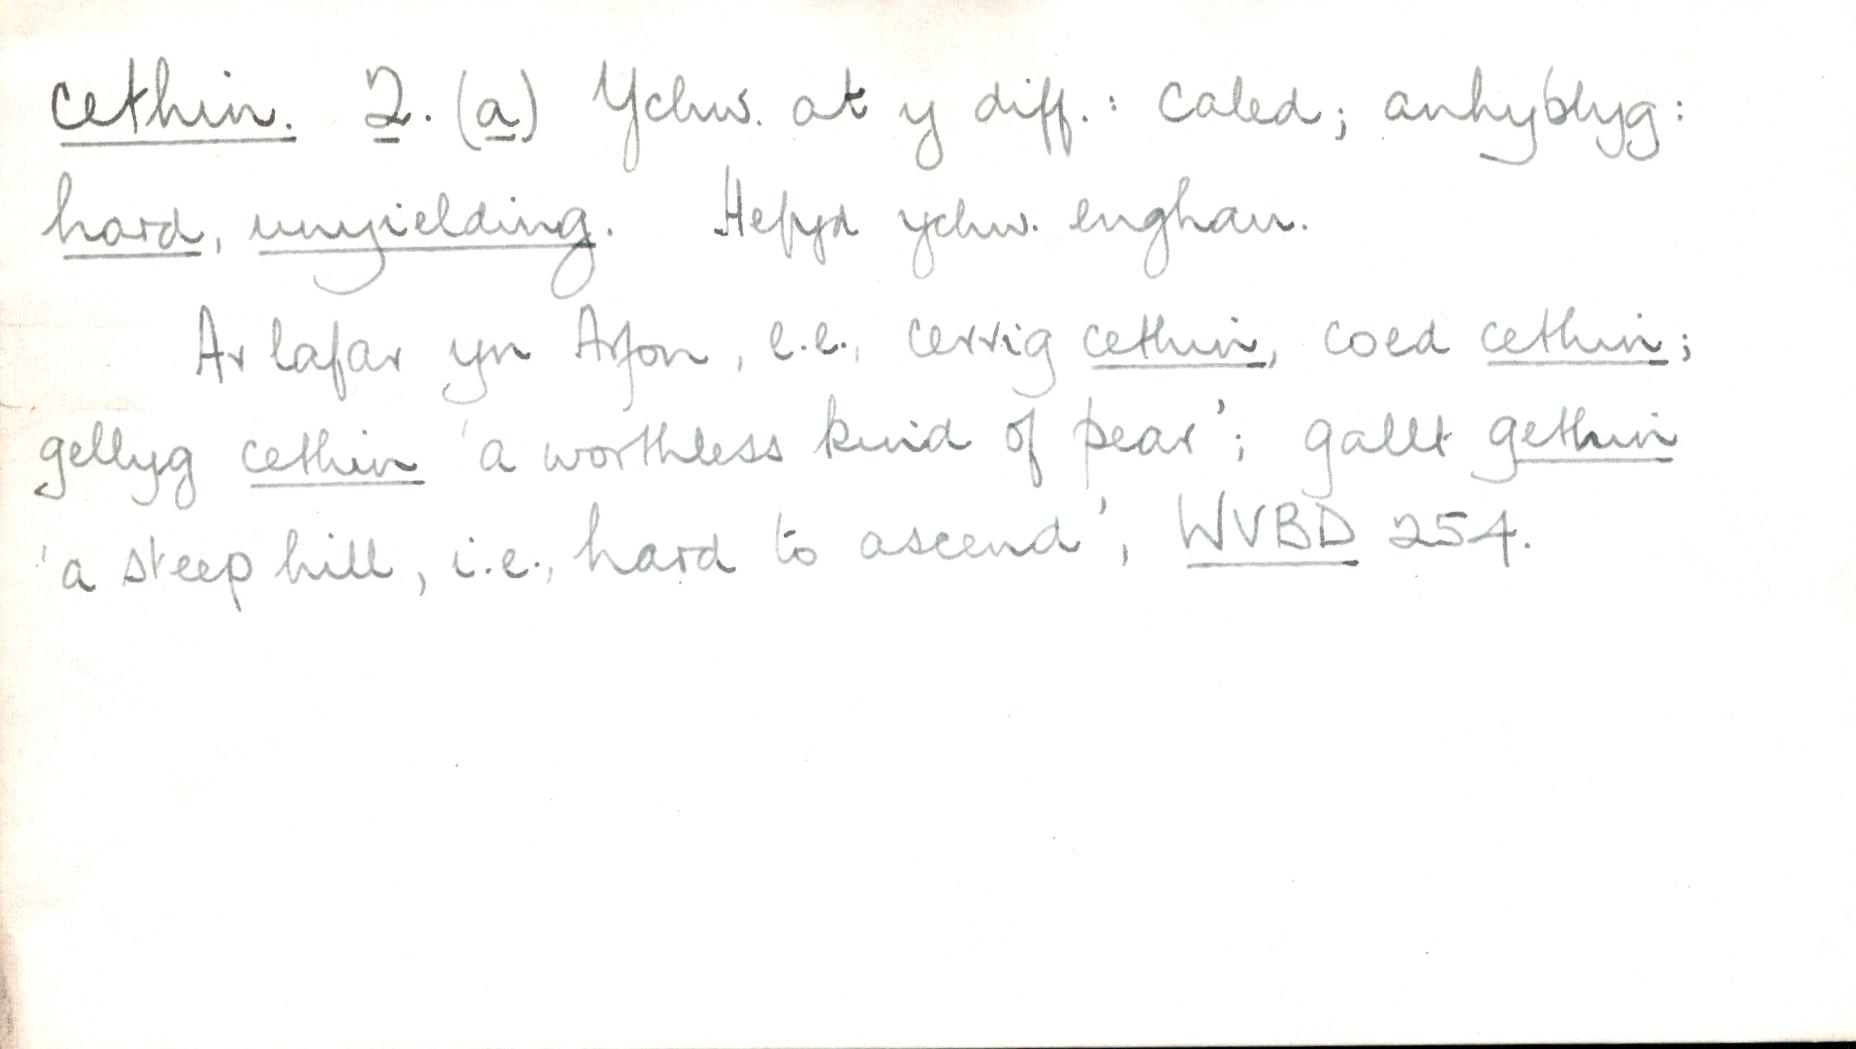 cethin. 2. (a) Ychw. at y diff.: caled; anhyblyg:
hard, unyielding. Hefyd ychw. enghau.
Ar lafar yn Arfon, e.e., cerrig cethin, coed cethin;
gellyg cethin 'a worthless kind of pear'; gallt gethin
'a steep hill, i.e., hard to ascend', WVBD 254.